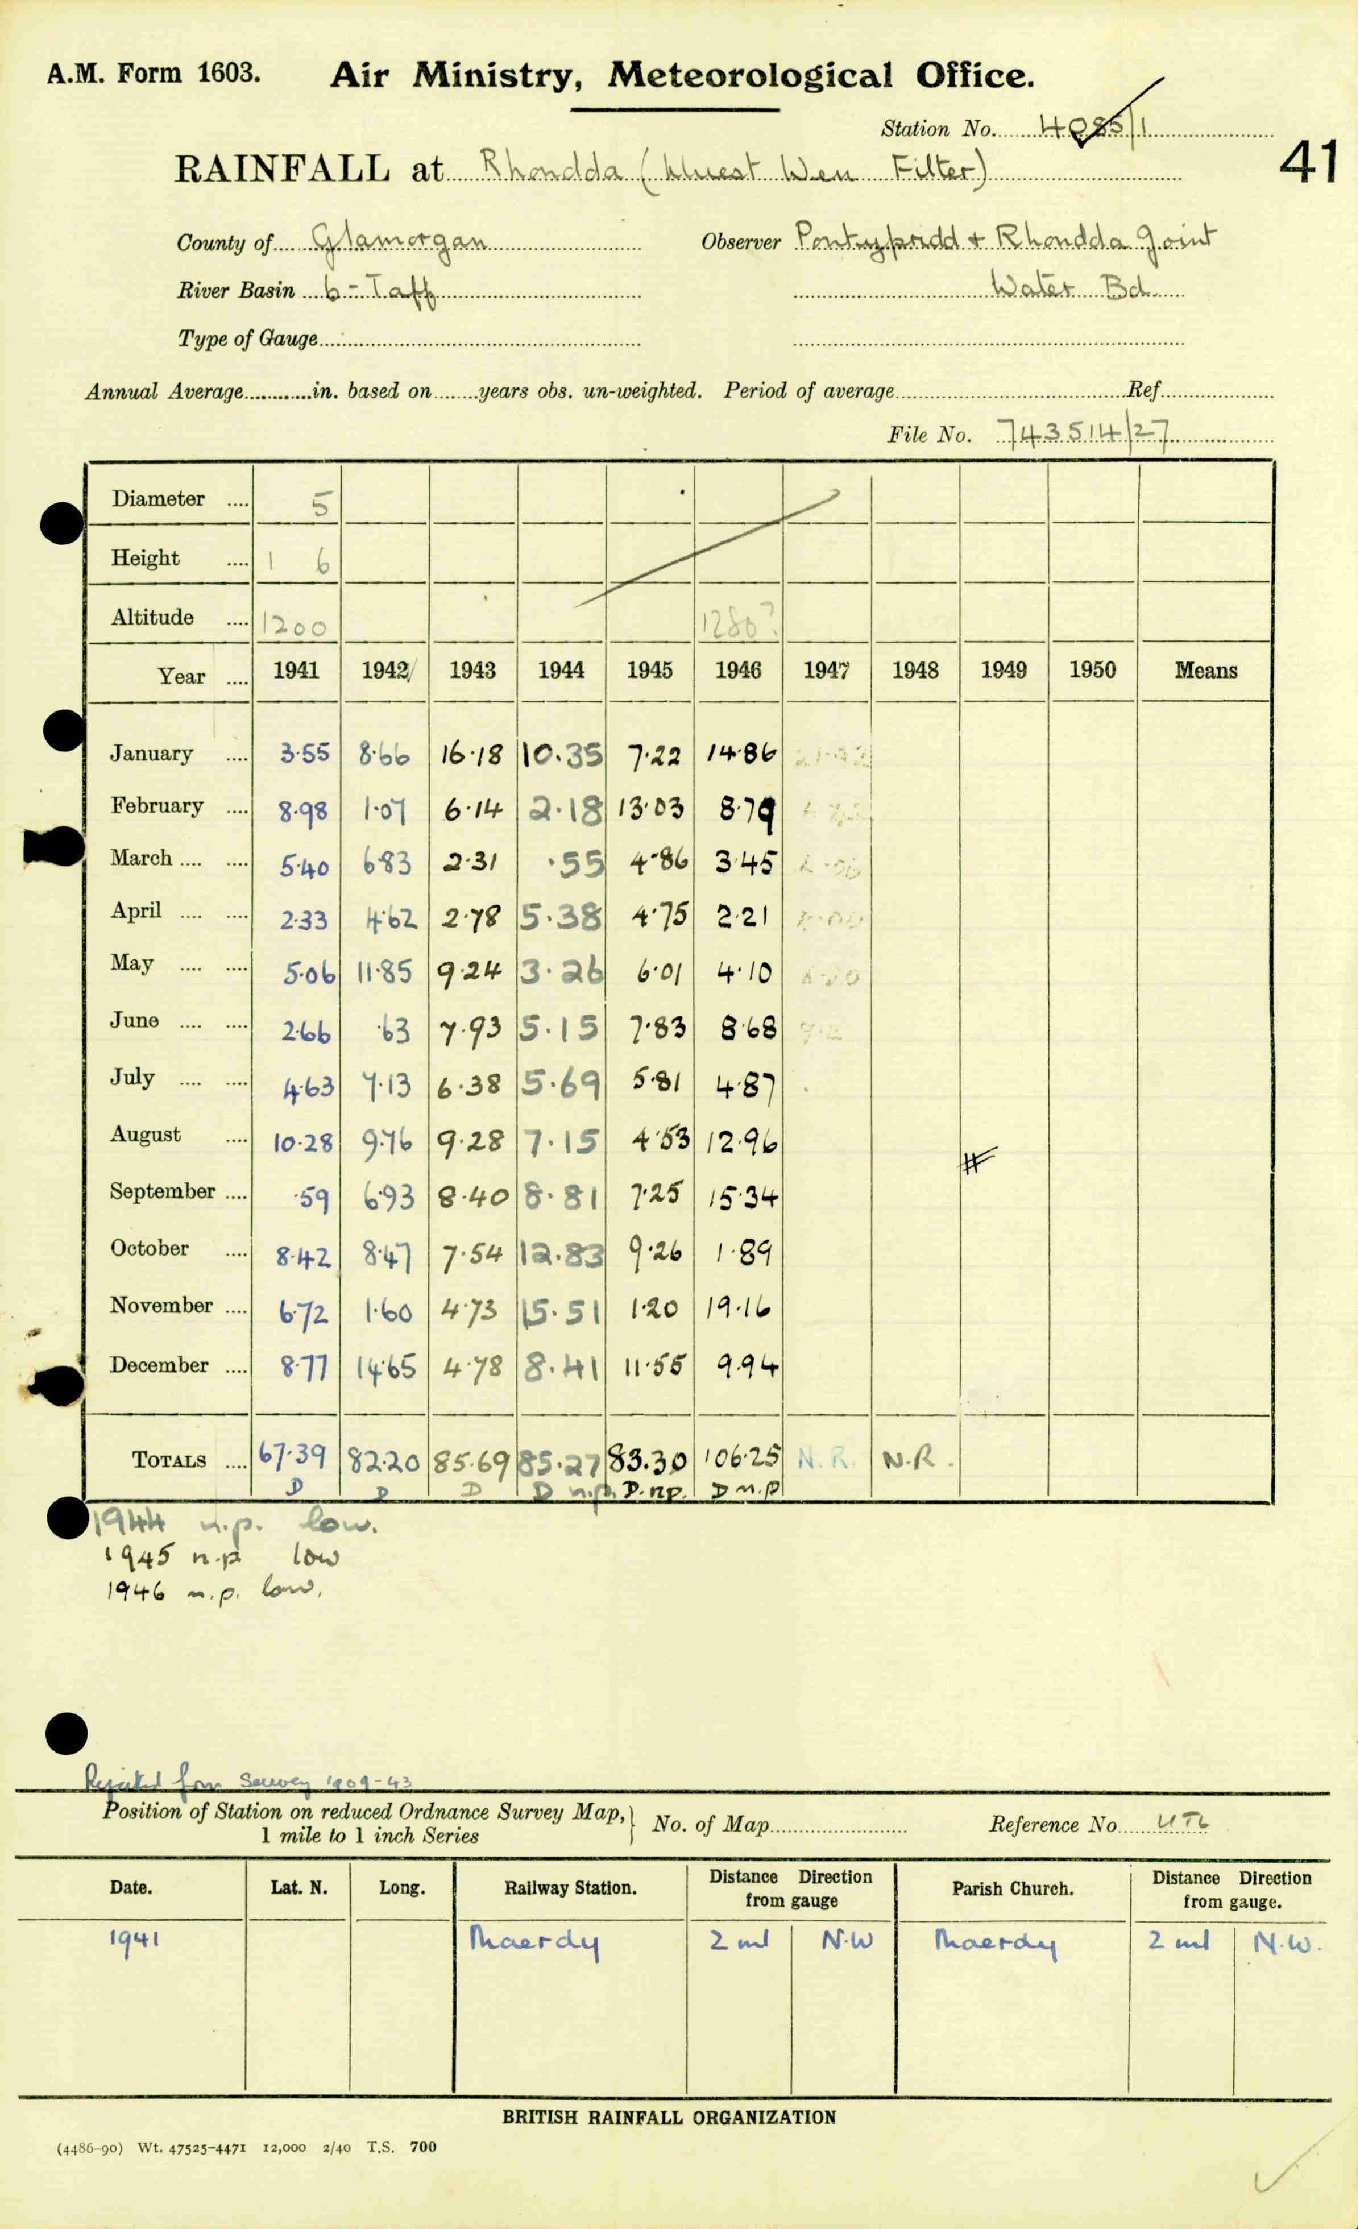 A.M. Form 1603. Air Ministry, Meteorological Office.
Station No. 4085/1
41
RAINFALL at Rhondda (Lluest Wen Filter)
County of Glamorgan Observer Pontypridd + Rhondda Joint
River Basin 6 - Taff Water Bd.
Type of Gauge
Annual Average in. based on years obs. un-weighted. Period of average Ref.
File No. 743514/27
Diameter .... 5
Height .... 1 6
Altitude .... 1200 1280?
Year .... 1941 1942 1943 1944 1945 1946 1947 1948 1949 1950 Means
January .... 3.55 8.66 16.18 10.35 7.22 14.86
February .... 8.98 1.07 6.14 2.18 13.03 8.79
March .... .... 5.40 6.83 2.31 .55 4.86 3.45
April .... .... 2.33 4.62 2.78 5.38 4.75 2.21
May .... .... 5.06 11.85 9.24 3.26 6.01 4.10
June .... .... 2.66 .63 7.93 5.15 7.83 8.68
July .... .... 4.63 7.13 6.38 5.69 5.81 4.87
August .... 10.28 9.76 9.28 7.15 4.53 12.96
September .... .59 6.93 8.40 8.81 7.25 15.34
October .... 8.42 8.47 7.54 12.83 9.26 1.89
November .... 6.72 1.60 4.73 15.51 1.20 19.16
December .... 8.77 14.65 4.78 8.41 11.55 9.94
TOTALS .... 67.39 82.20 85.69 85.27 83.30 106.25 N.R. N.R.
D D D D n.p. D. n.p. D n.p
1944 n.p. low.
1945 n.p low
1946 n.p. low.
Rejected from Survey 1909-43
Position of Station on reduced Ordnance Survey Map, 1 mile to 1 inch Series No. of Map Reference No.
Date. Lat. N. Long. Railway Station. Distance Direction from gauge Parish Church. Distance Direction from gauge.
1941 Maerdy 2 ml N.W Maerdy 2 ml N.W.
BRITISH RAINFALL ORGANIZATION
(4486-90) Wt. 47525-4471 12,000 2/40 T.S. 700